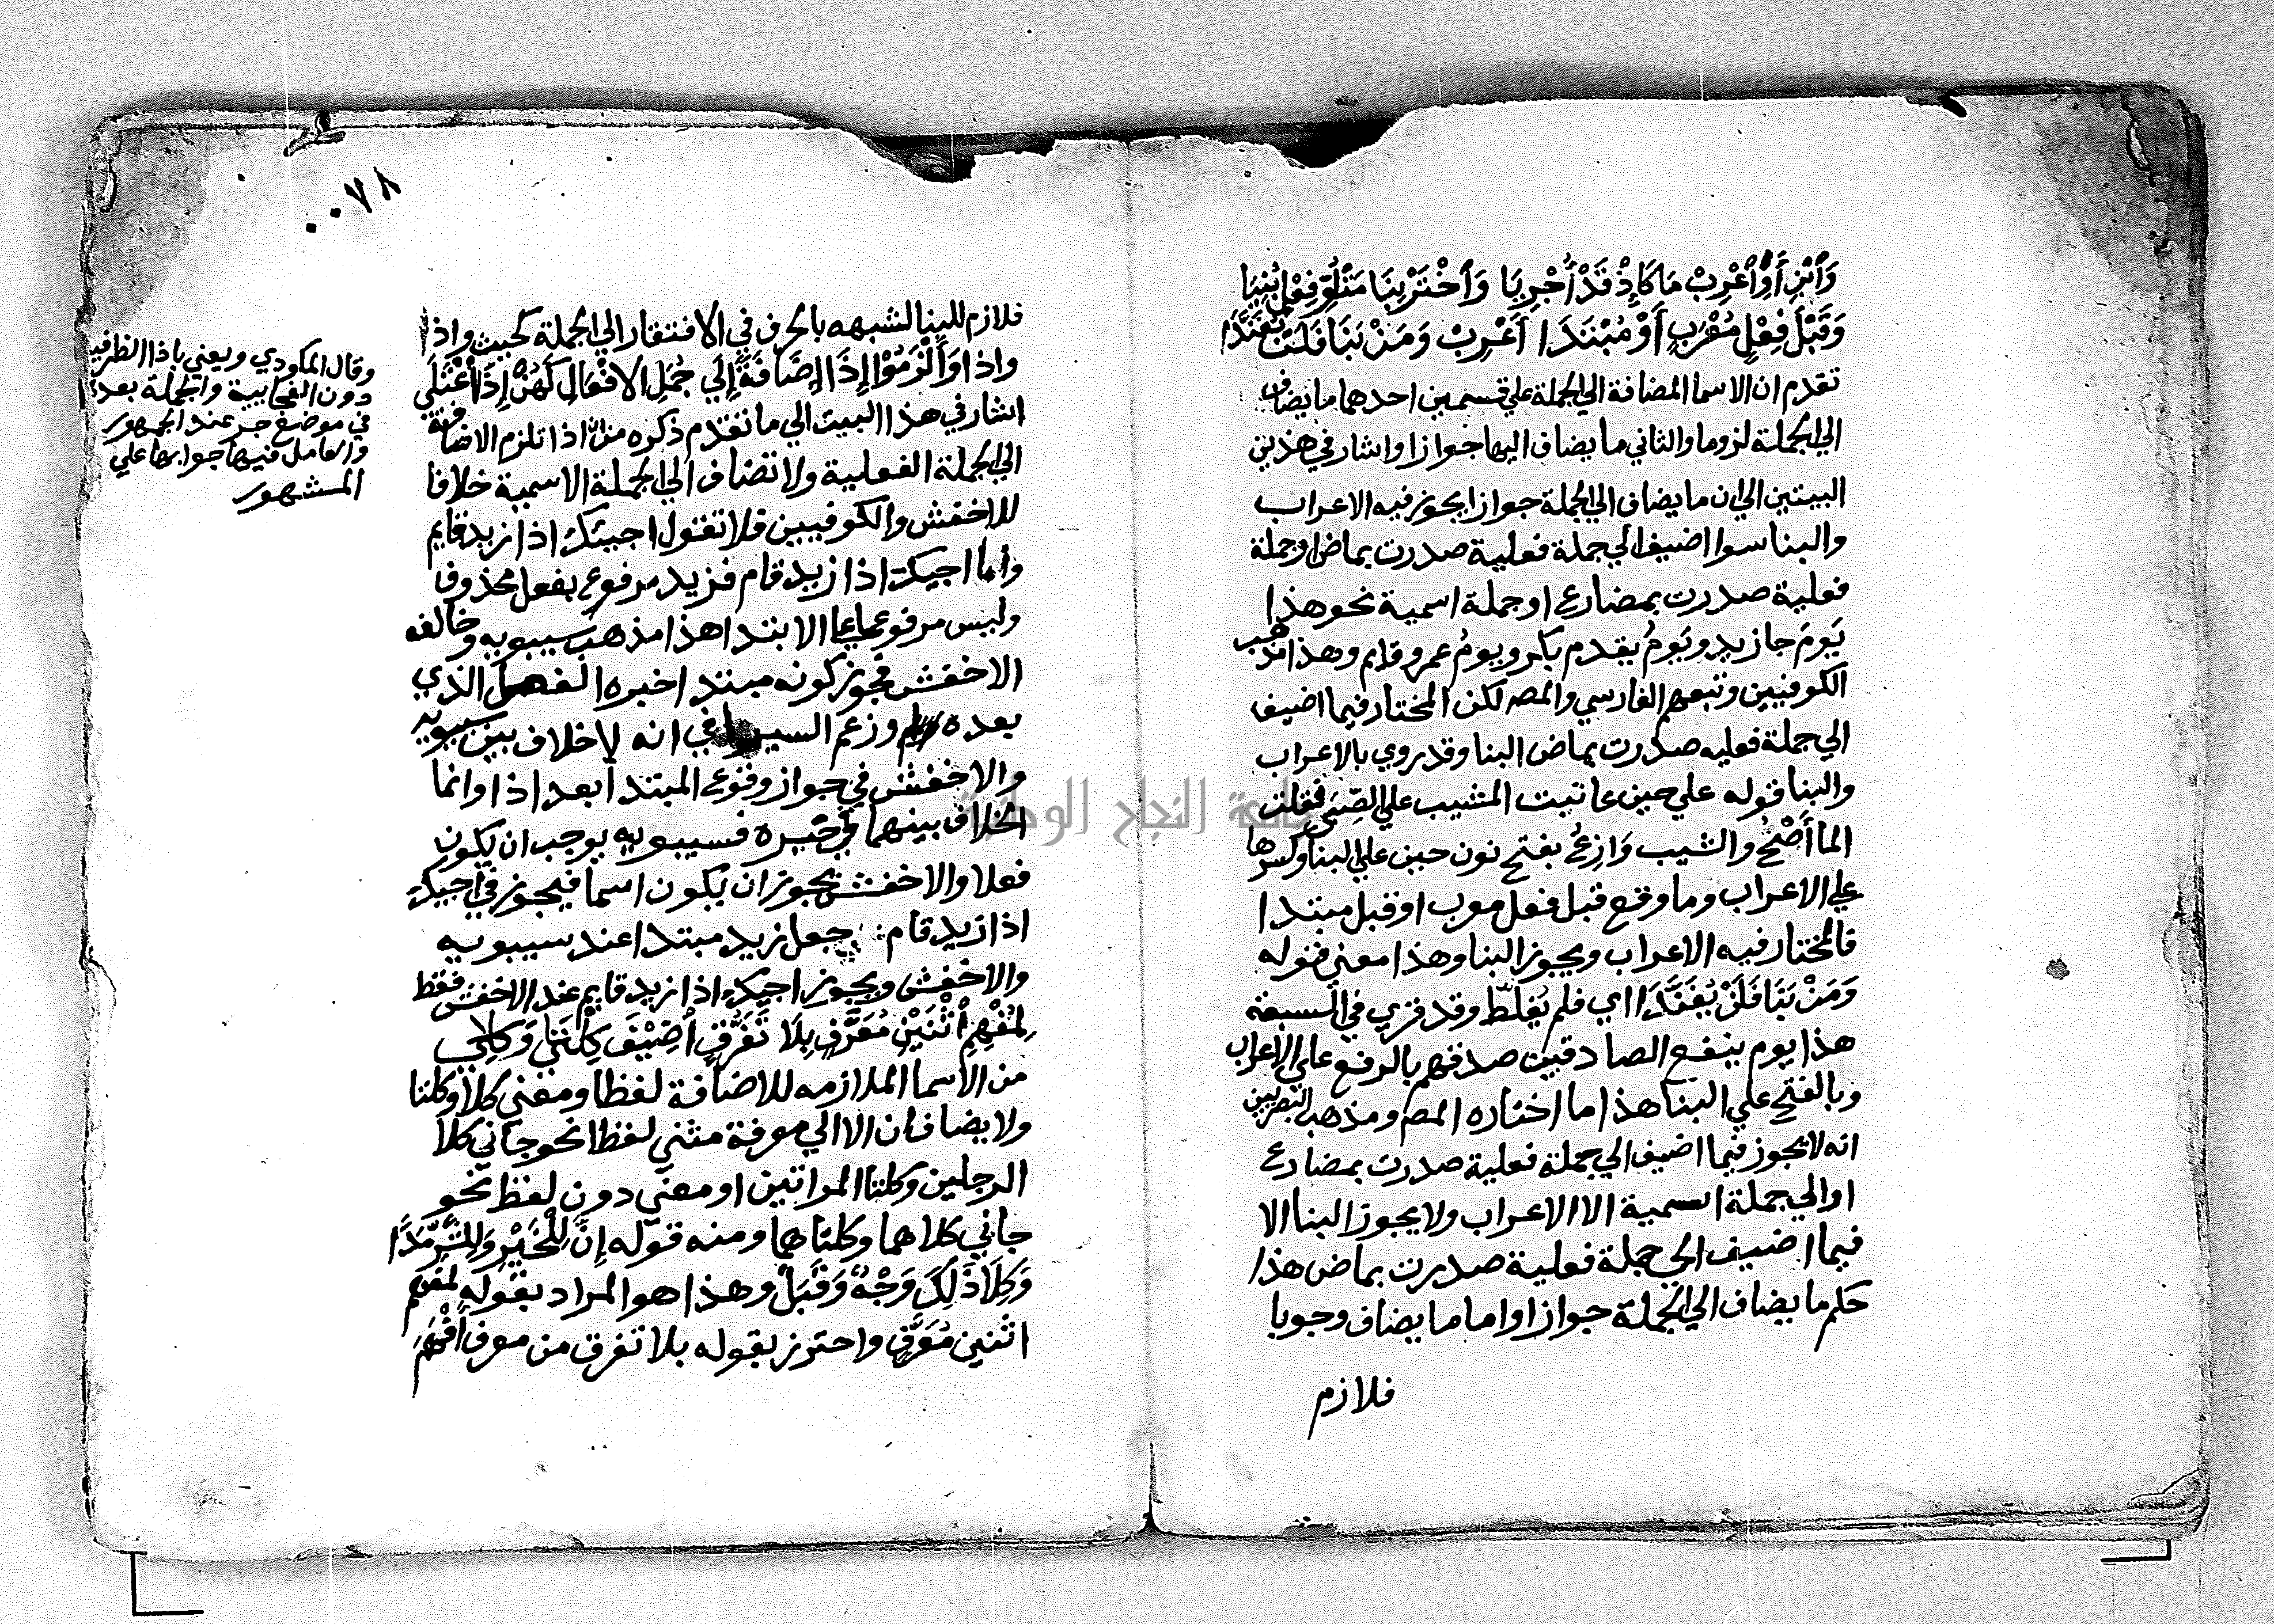 وَٱبْنِ أَوْ أَعْرِبْ مَا كَإِذْ قَدْ أُجْرِيَا وَٱخْتَرْ بِنَا مَتْلُوِّ فِعْلٍ بُنِيَا
وَقَبْلَ فِعْلٍ مُعْرَبٍ أَوْ مُبْتَدَا أَعْرِبْ وَمَنْ بَنَا فَلَنْ يُفَنَّدَا
تقدم ان الاسما المضافة الي الجملة علي قسمين احدهما ما يضاف
الي الجملة لزوما والثاني ما يضاف اليها جوازا واشار في هذين
البيتين الي ان ما يضاف الي الجملة جوازا يجوز فيه الاعراب
والبنا سوا اضيف الي جملة فعلية صدرت بماض او جملة
فعلية صدرت بمضارع او جملة اسمية نحو هذا
يَومَ جا زيد ويَومُ يقدم بكر ويومُ عمرو قايم وهذا مذهب
الكوفيين وتبعهم الفارسي والمصـ لكن المختار فيما اضيف
الي جملة فعليه صدرت بماض البنا وقد روي بالاعراب
والبنا قوله علي حين عاتبت المشيب علي الصِّبَي فقلت
الما أَصْحُ والشيب وَازِعُ بفتح نون حين علي البنا وكسرها
علي الاعراب وما وقع قبل فعل معرب او قبل مبتدا
فالمختار فيه الاعراب ويجوز البنا وهذا معني قوله
وَمَنْ بَنَا فَلَنْ يُفَنَّدَا اي فلم يُغلّط وقد قري في السبعة
هذا يوم ينفع الصادقين صدقهم بالرفع علي الاعراب
وبالفتح علي البنا هذا ما اختاره المصـ ومذهب البصريين
انه لا يجوز فيما اضيف الي جملة فعلية صدرت بمضارع
او الي جملة اسمية الا الاعراب ولا يجوز البنا الا
فيما اضيف الي جملة فعلية صدرت بماض هذا
حكم ما يضاف الي الجملة جوازا واما ما يضاف وجوبا
فلازم
٠٠٧٨
فلازم للبنا لشبهه بالحرف في الافتقار الي الجملة كحيث واذ
واذا وَأَلْزَمُوْا إِذَا إِضَافَةً إِلَي جُمَلِ الافْعَالِ كَهُنْ إِذَا اعْتَلَي
اشار في هذا البيت الي ما تقدم ذكره من ان اذا تلزم الاضافة
الي الجملة الفعلية ولا تضاف الي الجملة الاسمية خلافا
للاخفش والكوفيين فلا تقول اجيئك اذا زيد قايم
واما اجيك اذا زيد قام فزيد مرفوع بفعل محذوف
وليس مرفوعا علي الابتدا هذا مذهب سيبويه وخالفه
الاخفش فجوز كونه مبتدا خبره الفعل الذي
بعده وزعم السيرافي انه لا خلاف بين سيبويه
والاخفش في جواز وقوع المبتدا بعد اذا وانما
الخلاف بينهما في خبره فسيبويه يوجب ان يكون
فعلا والاخفش يجوز ان يكون اسما فيجوز في اجيك
اذا زيد قام جعل زيد مبتدا عند سيبويه
والاخفش ويجوز اجيك اذا زيد قايم عند الاخفش فقط
لِمُفْهِمِ ٱثْنَيْنِ مُعَرَّفٍ بِلَا تَفَرُّقٍ أُضِيْفَ كِلْتَا وَكِلَا
من الاسما الملازمه للاضافة لفظا ومعني كلا وكلتا
ولا يضافان الا الي معرفة مثني لفظا نحو جاني كلا
الرجلين وكلتا المراتين او معني دون لفظ نحو
جاني كلاهما وكلتاهما ومنه قوله إِنَّ لِلْخَيْرِ وَلِلشَّرِّ مَدًا
وَكِلَا ذَلِكَ وَجْهٌ وَقَبَلْ وهذا هو المراد بقوله لمفهم
اثنين مُعَرَّفٍ واحترز بقوله بلا تفرق من معرف افهم
وقال المكودي ويعني باذا الظرفية
دون الفجايية والجملة بعدها
في موضع جر عند الجمهور
والعامل فيها جوابها علي
المشهور
جامعة النجاح الوطنية